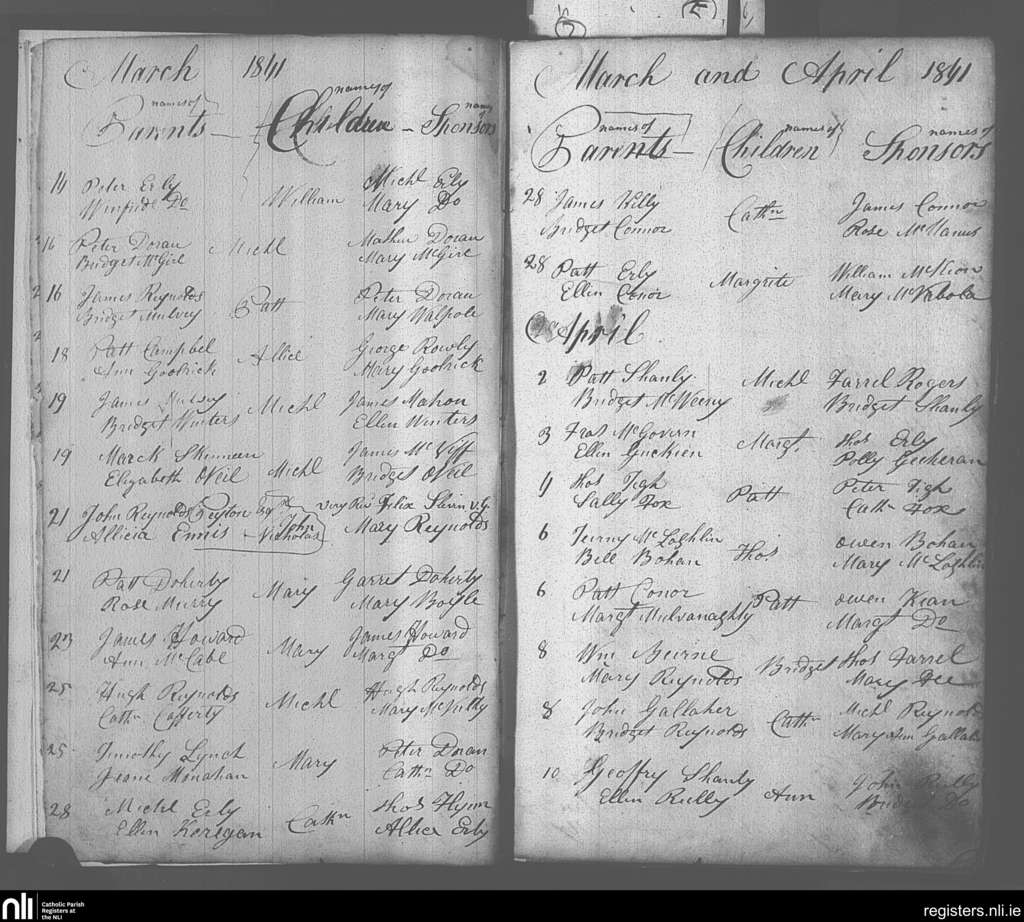 March 1841
names of Parents - names of Children - names Sponsors
14 Peter Erly William Michl Erly
Winfride Do Mary Do
16 Peter Doran Michl Mathew Doran
Bridget McGirl Mary McGirl
16 James Reynolds Patt Peter Doran
Bridget Mulvey Mary Walpole
18 Patt Campbel Allice George Rowly
Ann Goolrick Mary Goolrick
19 James Michl James Mahon
Bridget Winters Ellen Winters
19 Marck Skenneen Michl James
Elizabeth ONeil Bridget ONeil
21 John Reynolds Peyton Esqr John Very Revd Felix V.G.
Allicia Ennis - Nicholas Mary Reynolds
21 Patt Doherty Mary Garret Doherty
Rose Murry Mary Boyle
23 James Howard Mary James Howard
Ann McCabe Margt Do
25 Hugh Reynolds Michl Hugh Reynolds
Cathn Cafferty Mary McNilly
25 Timothy Lynch Mary Peter Doran
Jeane Monahan Cathn Do
28 Michl Erly Cathn Thos Flynn
Ellen Kerigan Allice Erly
March and April 1841
names of Parents - names of Children names of Sponsors
28 James Cathn James Connor
Bridget Connor Rose McManus
28 Patt Erly Margrite William McKeon
Ellen Conor Mary McNabola
April
2 Patt Shanly Michl Farrel Rogers
Bridget McWeeny Bridget Shanly
3 Fras McGovern Margt Thos Erly
Ellen Guckien Polly Geeheran
4 Thos Tigh Patt Peter Tigh
Sally Fox Cathn Fox
6 Teirny McLoghlin Thos Owen Bohan
Bell Bohan Mary McLoghlin
6 Patt Conor Patt Owen Kean
Margt Mulvanaghty Margt Do
8 Wm Beirne Bridget Thos Farrel
Mary Reynolds Mary Fee
8 John Gallaher Cathn Michl Reynolds
Bridget Reynolds Maryann Gallaher
10 Geoffry Shanly Ann John Reilly
Ellen Reilly Bridget Do
nli Catholic Parish
Registers at
the NLI
registers.nli.ie